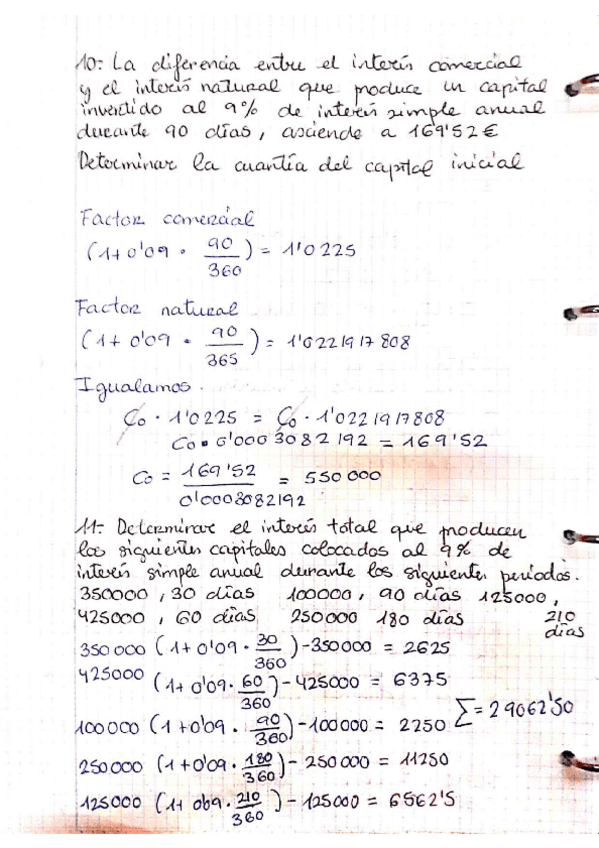 10.- La diferencia entre el interés comercial
y el interés natural que produce un capital
invertido al 9% de interés simple anual
durante 90 días, asciende a 169'52€
Determinar la cuantía del capital inicial
Factor comercial
(1+0'09 · 90/360) = 1'0225
Factor natural
(1+ 0'09 · 90/365) = 1'0221917808
Igualamos.
C₀ · 1'0225 = C₀ · 1'0221917808
C₀ · 0'0003082192 = 169'52
C₀ = 169'52/0'0003082192 = 550000
11.- Determinar el interés total que producen
los siguientes capitales colocados al 9% de
interés simple anual durante los siguientes períodos.
350000, 30 días 100000, 90 días 125000, 210 días
425000, 60 días 250000 180 días
350000 (1+0'09 · 30/360) - 350000 = 2625
425000 (1+0'09 · 60/360) - 425000 = 6375
100000 (1+0'09 · 90/360) - 100000 = 2250
Σ = 29062'50
250000 (1+0'09 · 180/360) - 250000 = 11250
125000 (1+ 0'09 · 210/360) - 125000 = 6562'5